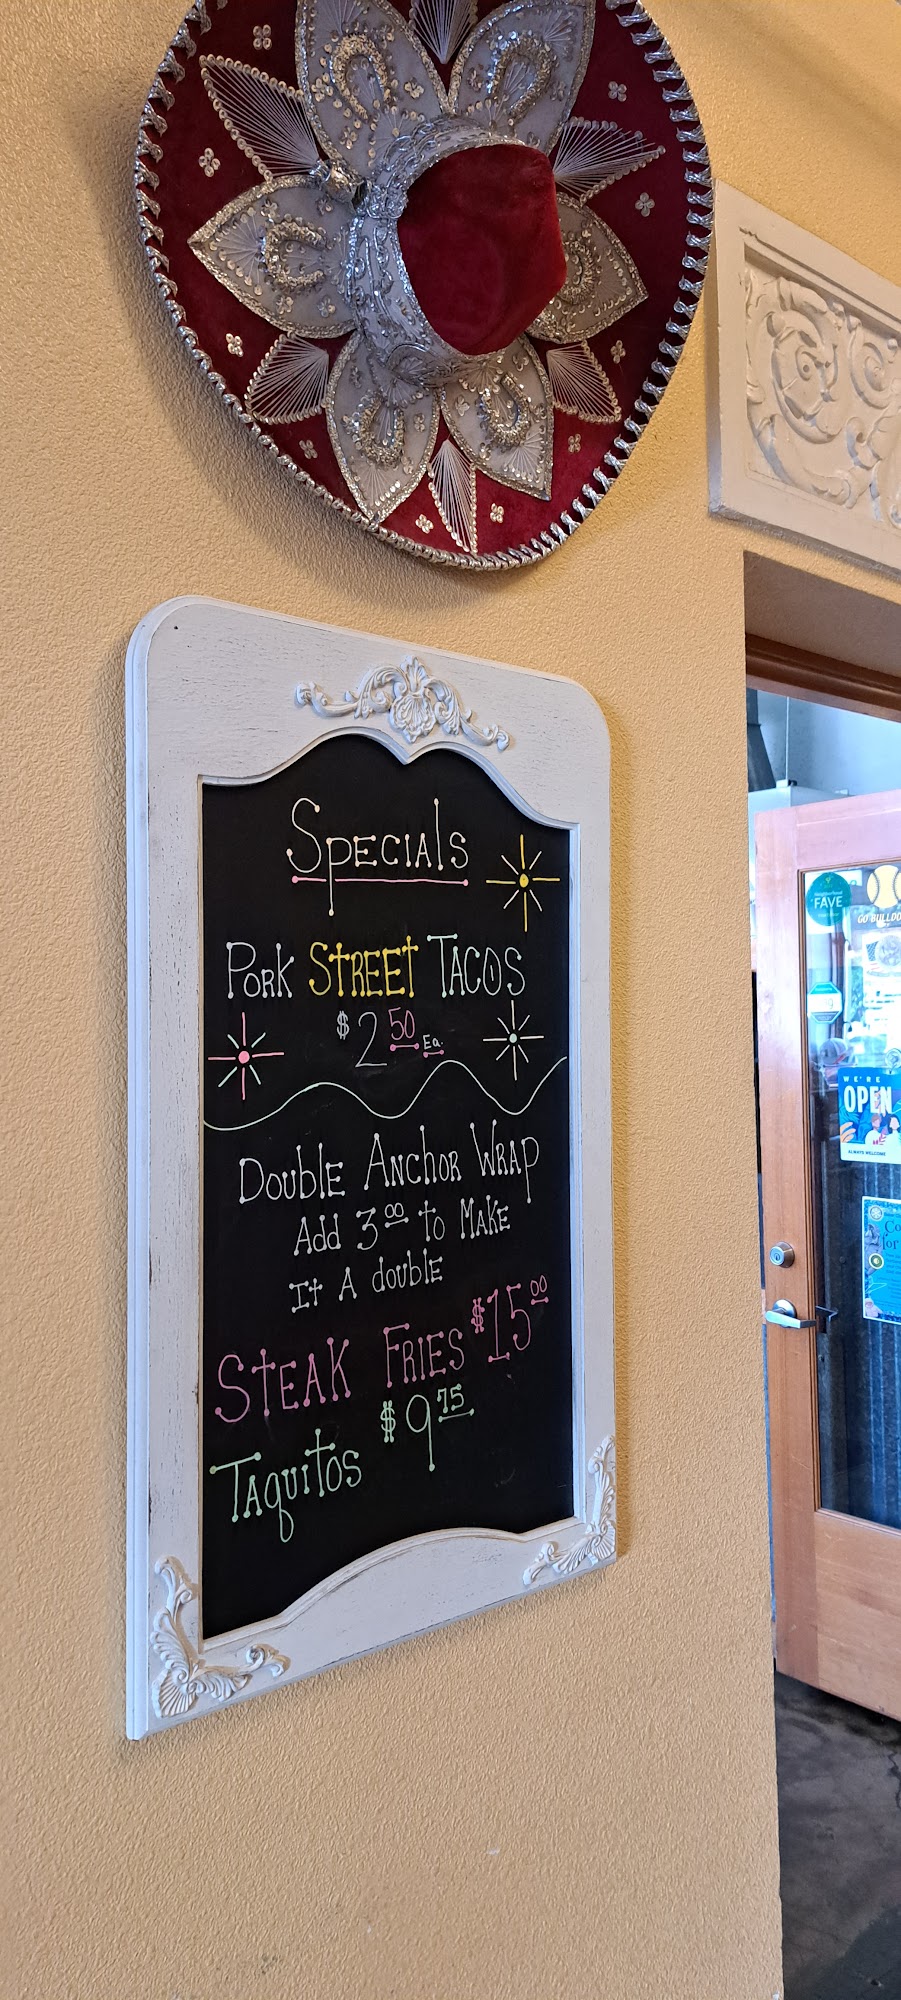 Specials
Pork Street Tacos
$2.50 Ea.
Double Anchor Wrap
Add 3.00 to Make
It A double
Steak Fries $15.00
Taquitos $9.75
FAVE
GO BULLDO
WE'RE
OPEN
ALWAYS WELCOME
Co
for